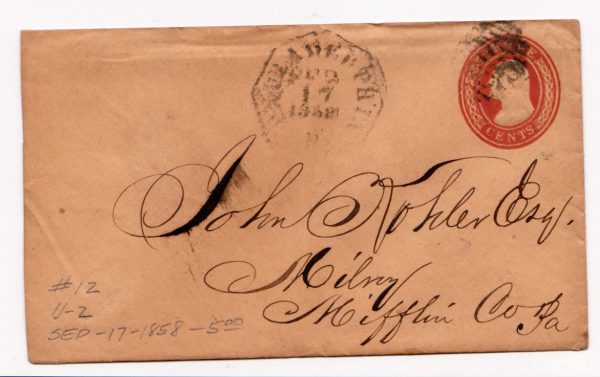 PHILADELPHIA
SEP
17
1858
CENTS
John Kohler Esq.
Milroy
Mifflin Co
Pa
#12
U-2
SEP-17-1858-5.00